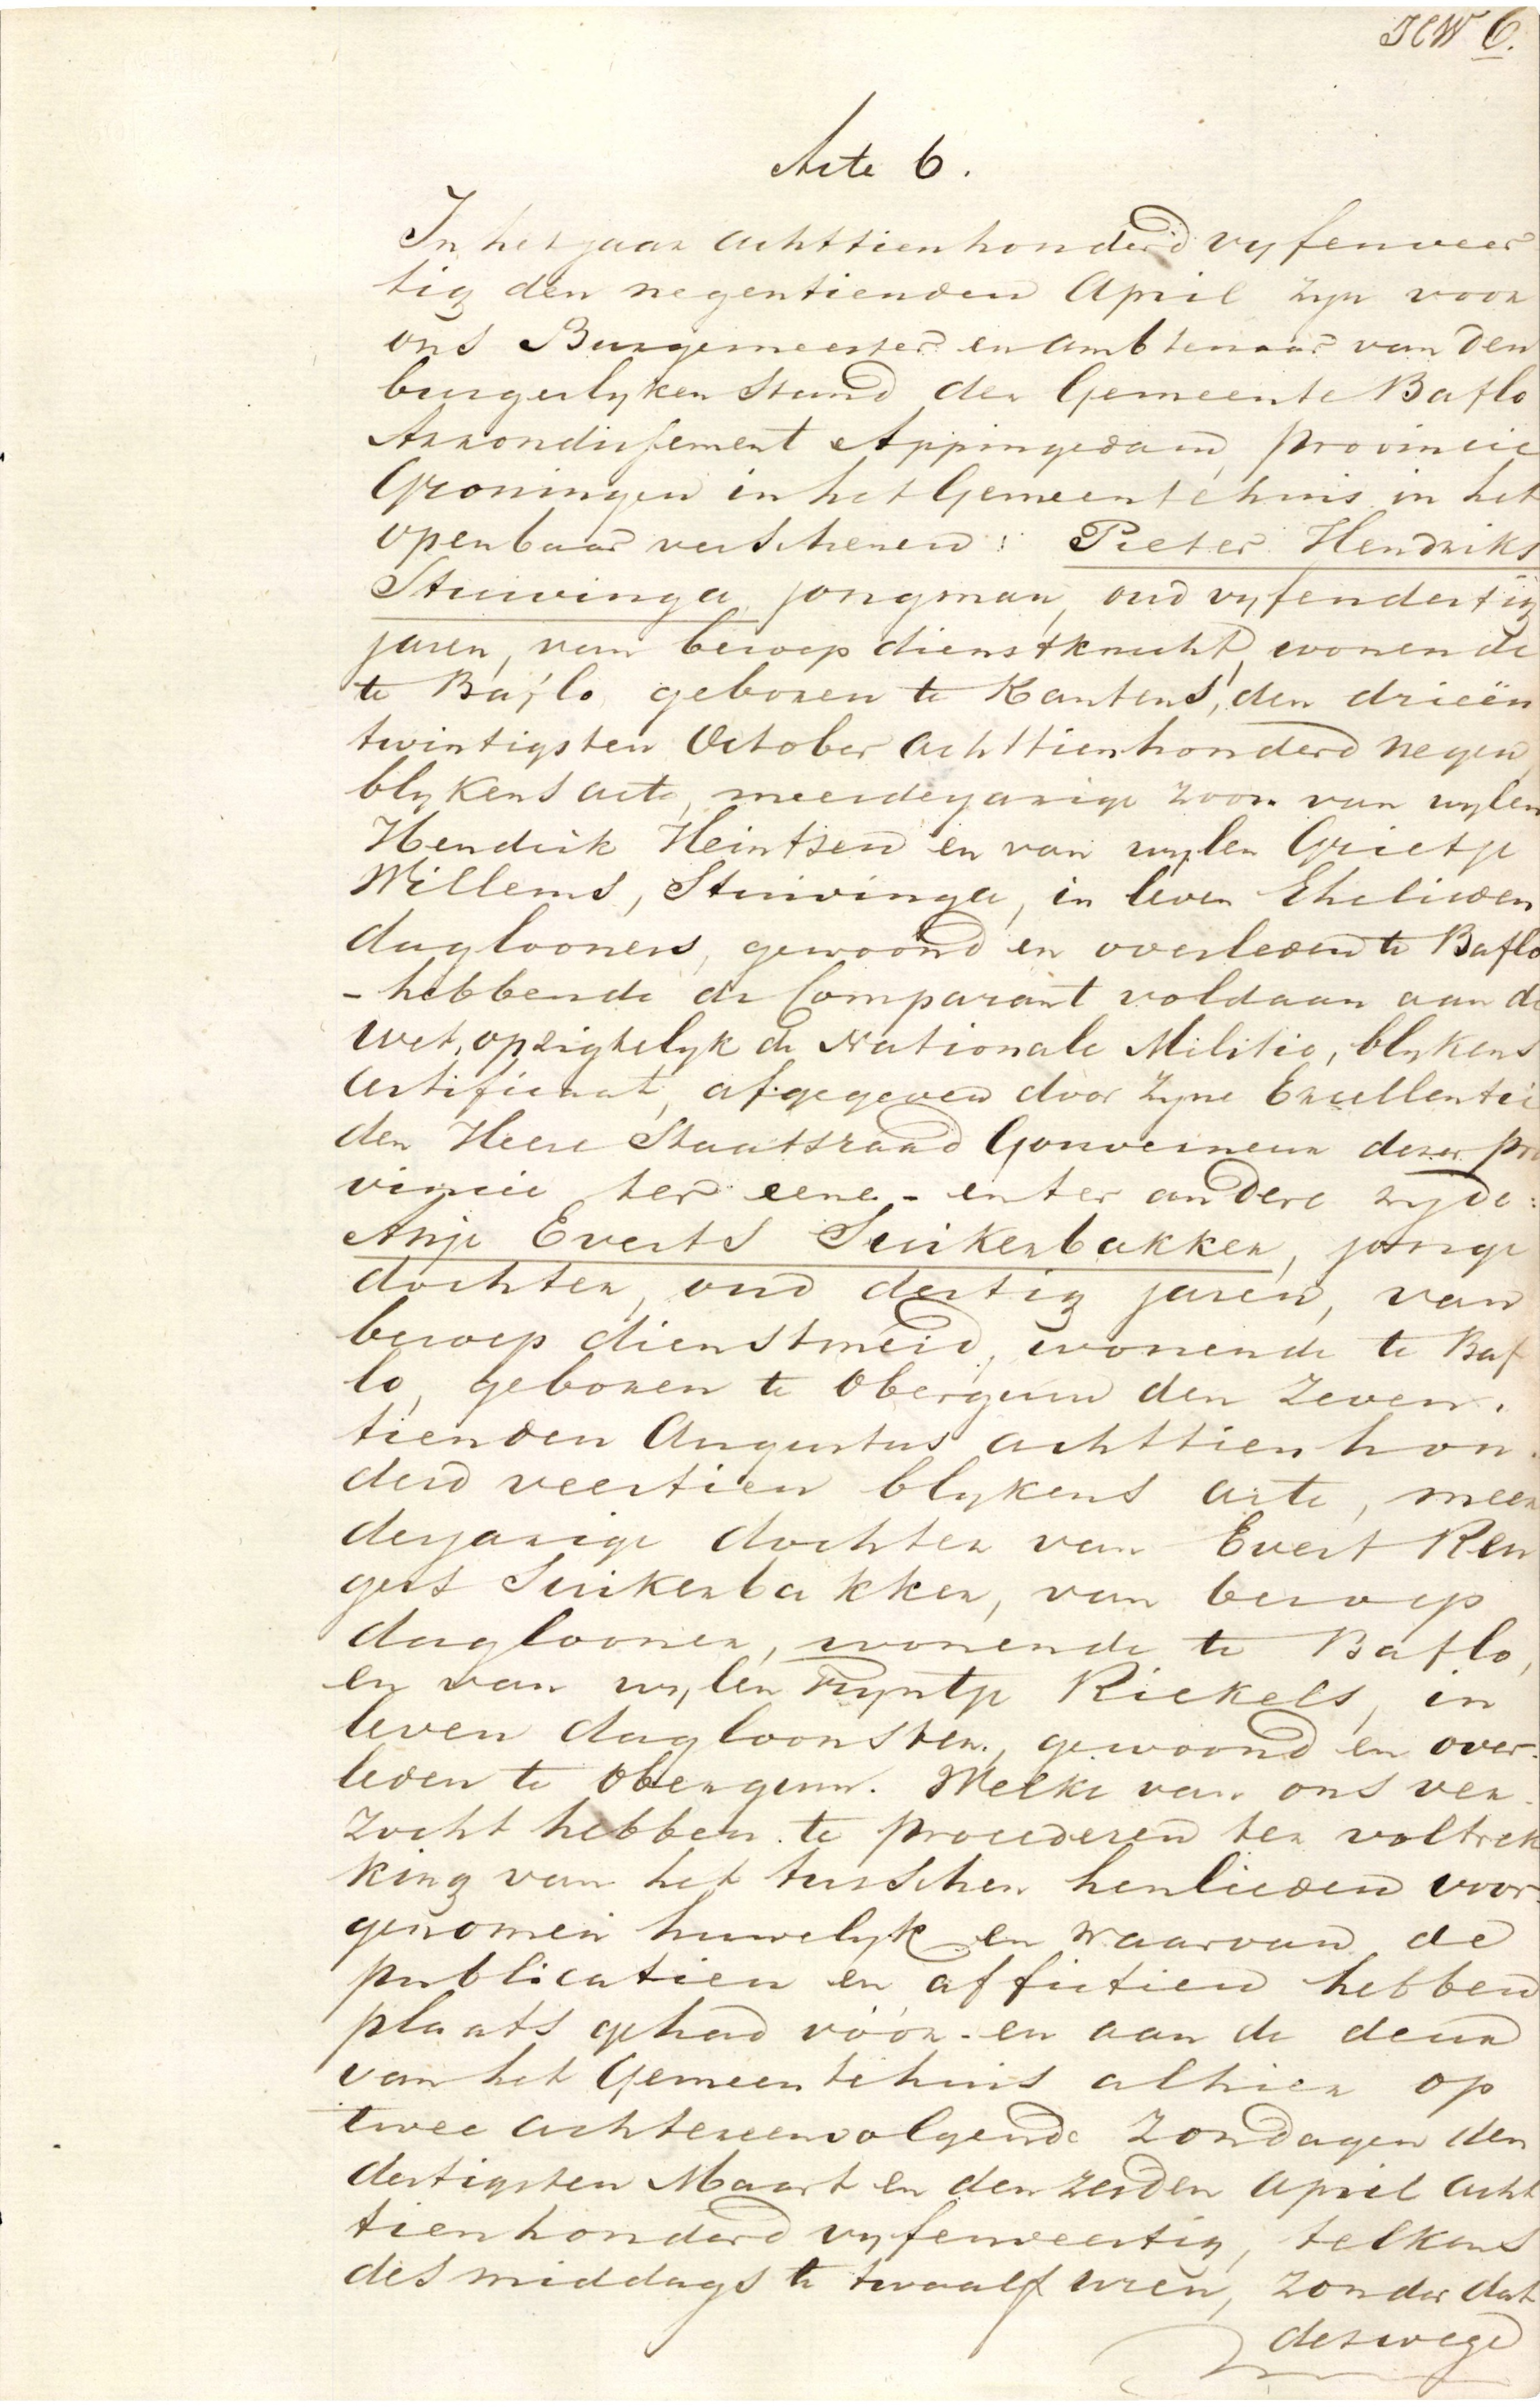 HW 6.
Acte 6.
In het jaar achttienhonderd vyfenveer
tig den negentienden April zyn voor
ons Burgemeester en ambtenaar van den
burgerlyken Stand der Gemeente Baflo
Arrondissement Appingedam, provincie
Groningen in het Gemeentehuis in het
openbaar verschenen: Pieter Hendriks
Stuivinga, jongman, oud vyfendertig
jaren, van beroep dienstknecht, wonende
te Baflo, geboren te Kantens, den drieën
twintigsten October achttienhonderd negen
blykens acte, meerderjarige zoon van wylen
Hendrik Heintsen en van wylen Grietje
Willems, Stuivinga, in leven Ehelieden
daglooners, gewoond en overleden te Baflo
- hebbende de Comparant voldaan aan de
wet, opzigtelyk de Nationale Militie, blykens
Certificaat, afgegeven door zyne Excellentie
den Heere Staatsraad Gouverneur dezer pro
vincie ter eene - en ter andere zyde:
Anje Everts Suikerbakker, jonge
dochter, oud dertig jaren, van
beroep dienstmeid, wonende te Baf
lo, geboren te Obergum den zeven,
tienden Augustus achttienhon-
derd veertien blykens acte, meer
derjarige dochter van Evert Ren
gers Suikerbakker, van beroep
daglooner, wonende te Baflo,
en van wylen Tryntje Riekels, in
leven dagloonster, gewoond en over-
leden te Obergum. Welke van ons ver-
zocht hebben te procederen ter voltrek
king van het tusschen henlieden voor-
genomen huwelyk en waarvan de
publicatien en affictien hebben
plaats gehad vóór - en aan de deur
van het Gemeentehuis alhier op
twee achtereenvolgende Zondagen den
dertigsten Maart en den zesden April acht
tienhonderd vyfenveertig, telkens
des middags te twaalf uren, zonder dat
deswege